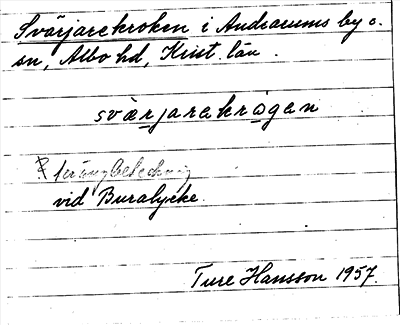 Svärjarekroken i Andrarums by o.
sn, Albo hd, Krist. län.
svärjarekrågen
vid Buralycke.
Ture Hansson 1957.